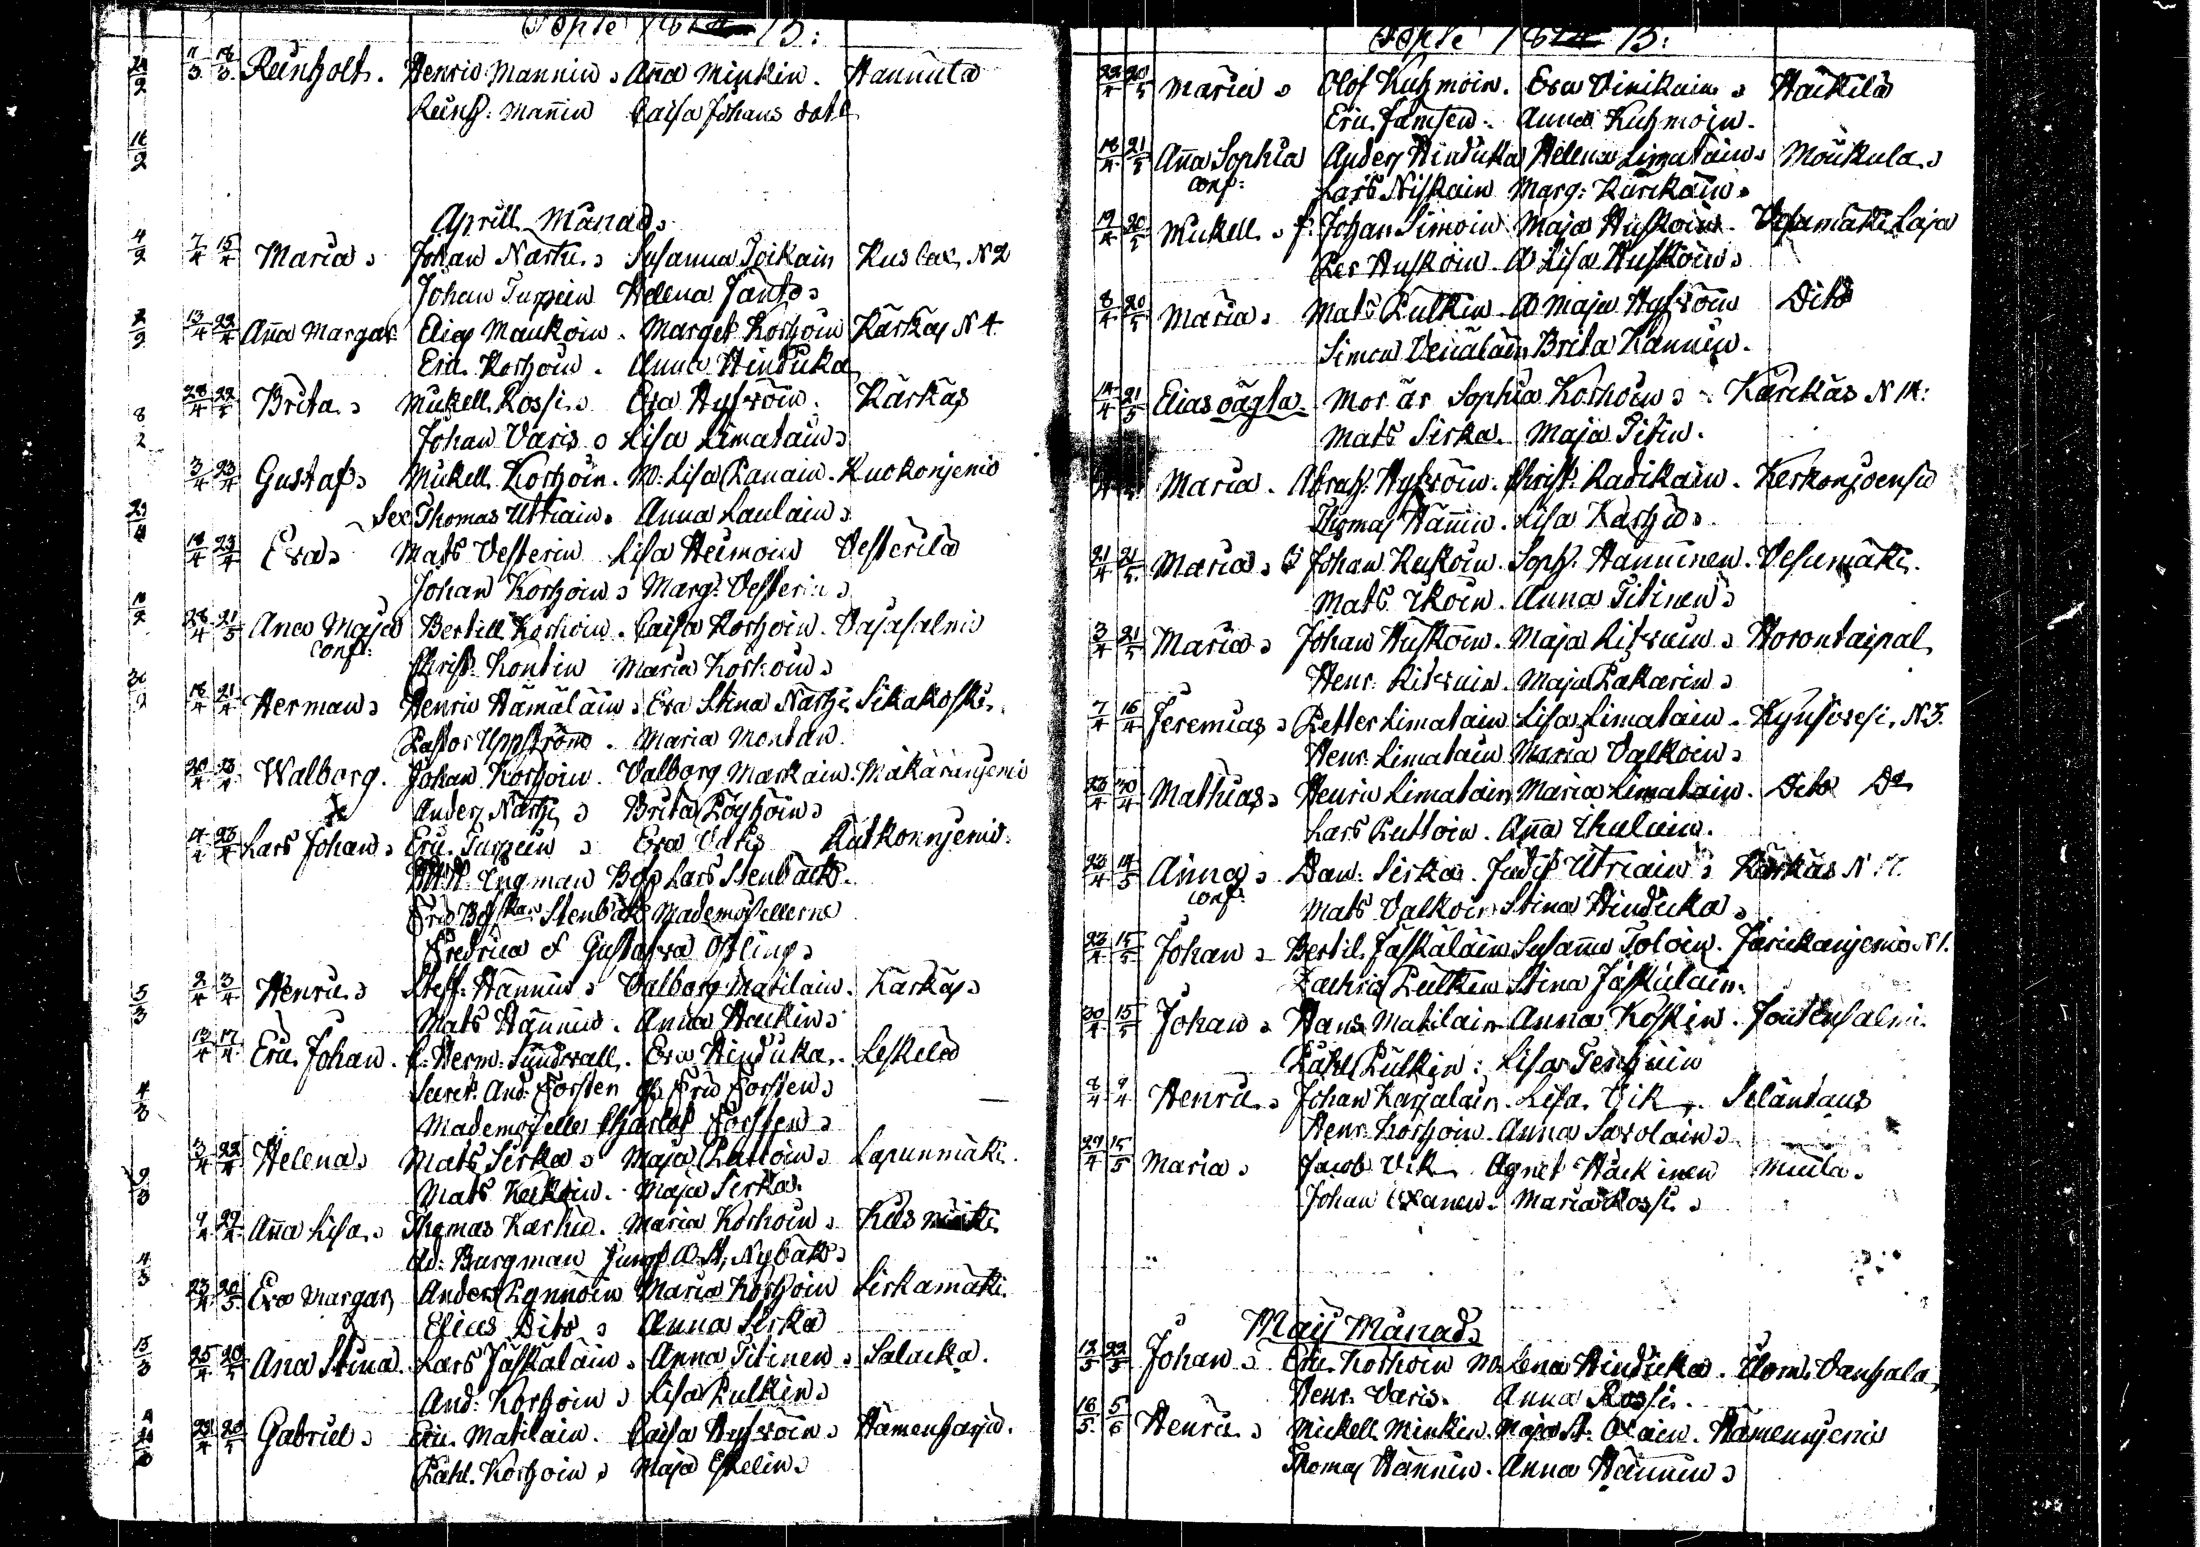 Döpte 1815:
24/2 11/3 18/3 Reinholt. Henric Mannin Anna Minkin. Hannula
Reinh: Mannin Caisa Johans dott
16/2
Aprill Månad
4/2 7/4 15/4 Maria Johan Narhi Susanna Toikain Kuslax N 2
Johan Turpein Helena Janto
2/2 13/4 22/4 Anna Margar Elias Maukoin. Marget Korhoin Kärkäs N 4.
Eric Korhoin. Anna Hinduka
8/2 Brita Mickell Rossi Eva Hytröin. Kärkäs
Johan Varis Lisa Limatain
3/4 23/4 Gustaf Mickell Korhoin. Lisa Panain. Kuokonjemi
Sex Thomas Utriain Anna Laulain
18/4 23/4 Eva Mats Vesterin Lisa Heimoin Vesterilä
Johan Korhoin Marg: Vesterin
28/4 21/5 Anna Maja Bertill Korhoin. Caisa Korhoin. Vajasalmi
conf: Christ. Kontin Maria Korhoin
18/4 21/4 Herman Henric Hämäläin Eva Stina Narhi Sikakoski
Pastor Uppström. Maria Montan.
20/4 23/4 Walborg. Johan Korhoin. Valborg Markain. Makarinjemi
Anders Narhi Brita Pöyhöin
Lars Johan Eric Turpein Eva Varis Rutkonnjemi
Engman Lars Stenbäck.
Stenbäck Mademosellerne
Fredrica & Gustafva Östling
5/3 2/4 3/4 Henric Steff: Hannin Valborg Matilain. Kärkäs
Mats Hannin. Anna Hackin
13/4 17/4 Eric Johan. Herm: Sundvall. Eva Hinduka. Leskelä
4/3 Secret: And: Forsten Fru Forsten
Mademoselle Charlot Forsten
3/4 22/4 Helena Mats Sirka Maja Puttoin Lapunmäki.
Mats Keskein. Maja Sirka.
Anna Lisa Thomas Karhu. Maria Korhoin
Ad: Bargman Jungf Nybäck
4/3 23/4 20/5 Eva Margar Anders Pynnöin Maria Korhoin Sirkamäki
Elias Dito Anna Sirka
15/3 25/4 20/5 Ana Stina. Lars Jäskäläin Anna Titinen Salacka.
And: Korhoin Lisa Pulkin
Gabriel Eric Matilain. Caisa Hytröin Hämenharju.
Påhl. Korhoin Maja Eskelin
Döpte 1815:
22/4 20/5 Maria Olof Kuhmoin. Eva Vinikain Häckilä
Eric Jämsen. Anna Kuhmoin.
18/4 21/5 Anna Sophia Anders Hinduka Helena Limatain Moukula
conf: Lars Niskain Marg: Kurckain
19/4 20/5 Mickell Johan Simoin Maja Huskoin. Vesamäki Laja
Per Huskoin. Lisa Huskoin
8/4 20/5 Maria Mats Pulkin Maja Hytröin Dito
Simon Venäläin Brita Kannin.
14/4 21/5 Elias oägta. Mor är Sophia Korhoin Kärckäs N 14:
Mats Sirka. Maja Titin.
Maria. Abrah: Hytröin. Christ: Radikain. Kerkonjoensu
Thomas Hännin. Lisa Karhu
21/4 21/5 Maria Johan Keskoin. Soph. Hänninen. Vesumäki.
Mats Ikoin. Anna Titinen
3/4 21/5 Maria Johan Huskoin. Maja Litvuin Horontaipal
Henr: Litvuin. Maja Pakarin
7/4 16/4 Jeremias Petter Limatain Lisa Limatain. Kynsivesi. N 3.
Henr: Limatain Maria Valkoin
23/4 30/4 Mathias Henric Limatain Maria Limatain. Dito Do
Lars Puttoin. Anna Ihalain.
23/4 14/5 Anna Dan: Sirka. Judit Utriain Kärkäs N
conf: Mats Valkoin Stina Hinduka
23/4 15/5 Johan Bertil Jäskäläin Susanna Toloin. Järickänjemi N 1.
Zachris Pulkin Stina Jäskäläin.
30/4 15/5 Johan Hans Matilain Anna Koskin. Joutensalmi.
Påhl Pulkin: Lisa Terhuin
8/4 9/4 Henric Johan Karjalain. Lisa Vik. Seländaus
Henr: Korhoin. Anna Savolain
29/4 15/5 Maria Jacob Vik Agnet Häckinen Miula
Johan Oxanen. Maria Rossi
Maij Månad
12/5 22/5 Johan Eric Korhoin Lena Hinduka. Vanhala
Henr: Varis. Anna Rossi.
16/5 5/6 Henric Mickell Minkin. Maja St: Oxain. Hämennjemi
Thomas Hännin. Anna Hännin